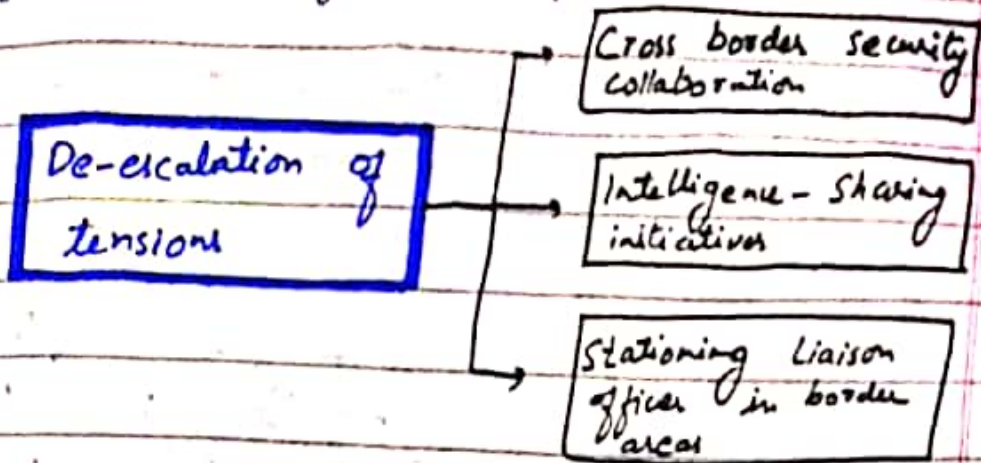 De-escalation of
tensions
Cross border security
collaboration
Intelligence - Sharing
initiatives
Stationing Liaison
officer in border
areas